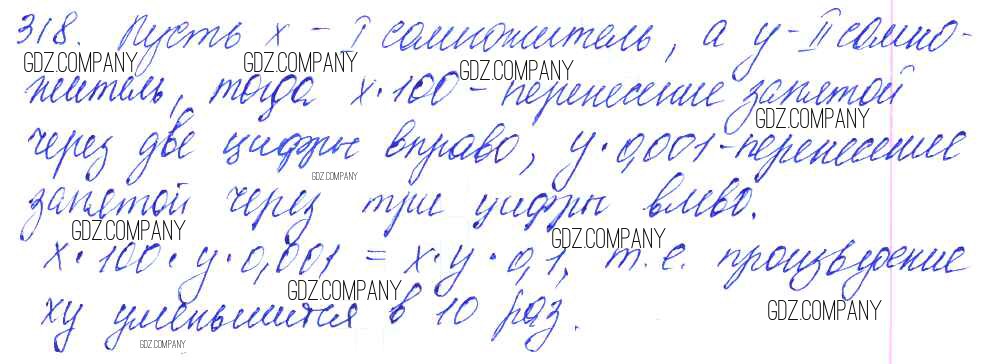 318. Пусть x - I сомножитель, а y - II сомно-
GDZ.COMPANY GDZ.COMPANY GDZ.COMPANY
житель, тогда x·100 - перенесение запятой
GDZ.COMPANY
через две цифры вправо, y·0,001 - перенесение
GDZ.COMPANY
запятой через три цифры влево.
GDZ.COMPANY GDZ.COMPANY
x·100·y·0,001 = x·y·0,1, т.е. произведение
GDZ.COMPANY GDZ.COMPANY
xy уменьшится в 10 раз.
GDZ.COMPANY